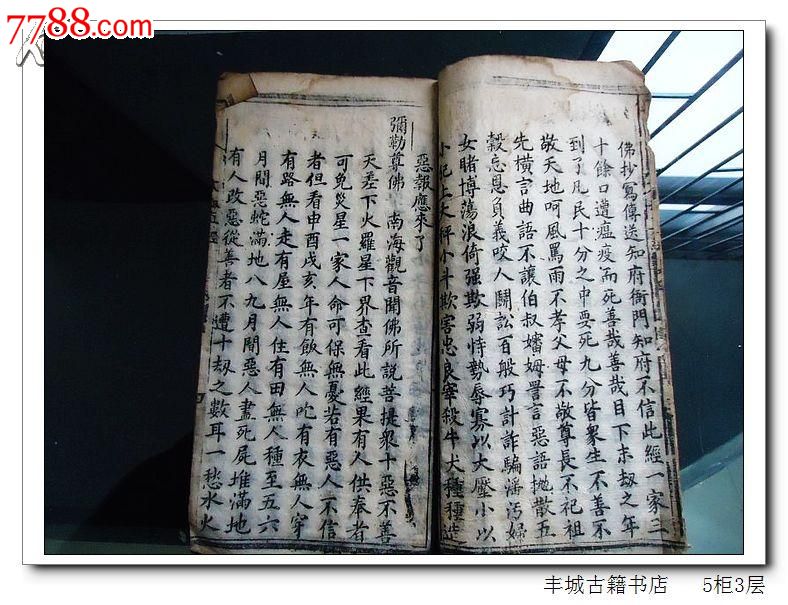 7788.com
佛抄寫傳送知府衙門知府不信此經一家三
十餘口遭瘟疫而死善哉善哉目下末劫之年
到了凡民十分之中要死九分皆衆生不善不
敬天地呵風罵雨不孝父母不敬尊長不祀祖
先橫言曲語不讓伯叔嬸姆詈言惡語拋散五
穀忘恩負義咬人鬪訟百般巧計詐騙滛污婦
女賭博蕩浪倚强欺弱恃勢辱寡以大壓小以
小犯上大秤小斗欺害忠良宰殺牛犬種種造
惡報應來了
彌勒尊佛 南海觀音聞佛所說菩提衆十惡不善
天差下火羅星下界查看此經果有人供奉者
可免災星一家人命可保無憂若有惡人不信
者但看申酉戌亥年有飯無人吃有衣無人穿
有路無人走有屋無人住有田無人種至五六
月間惡蛇滿地八九月間惡人盡死屍堆滿地
有人改惡從善者不遭十劫之數耳一愁水火
丰城古籍书店 5柜3层